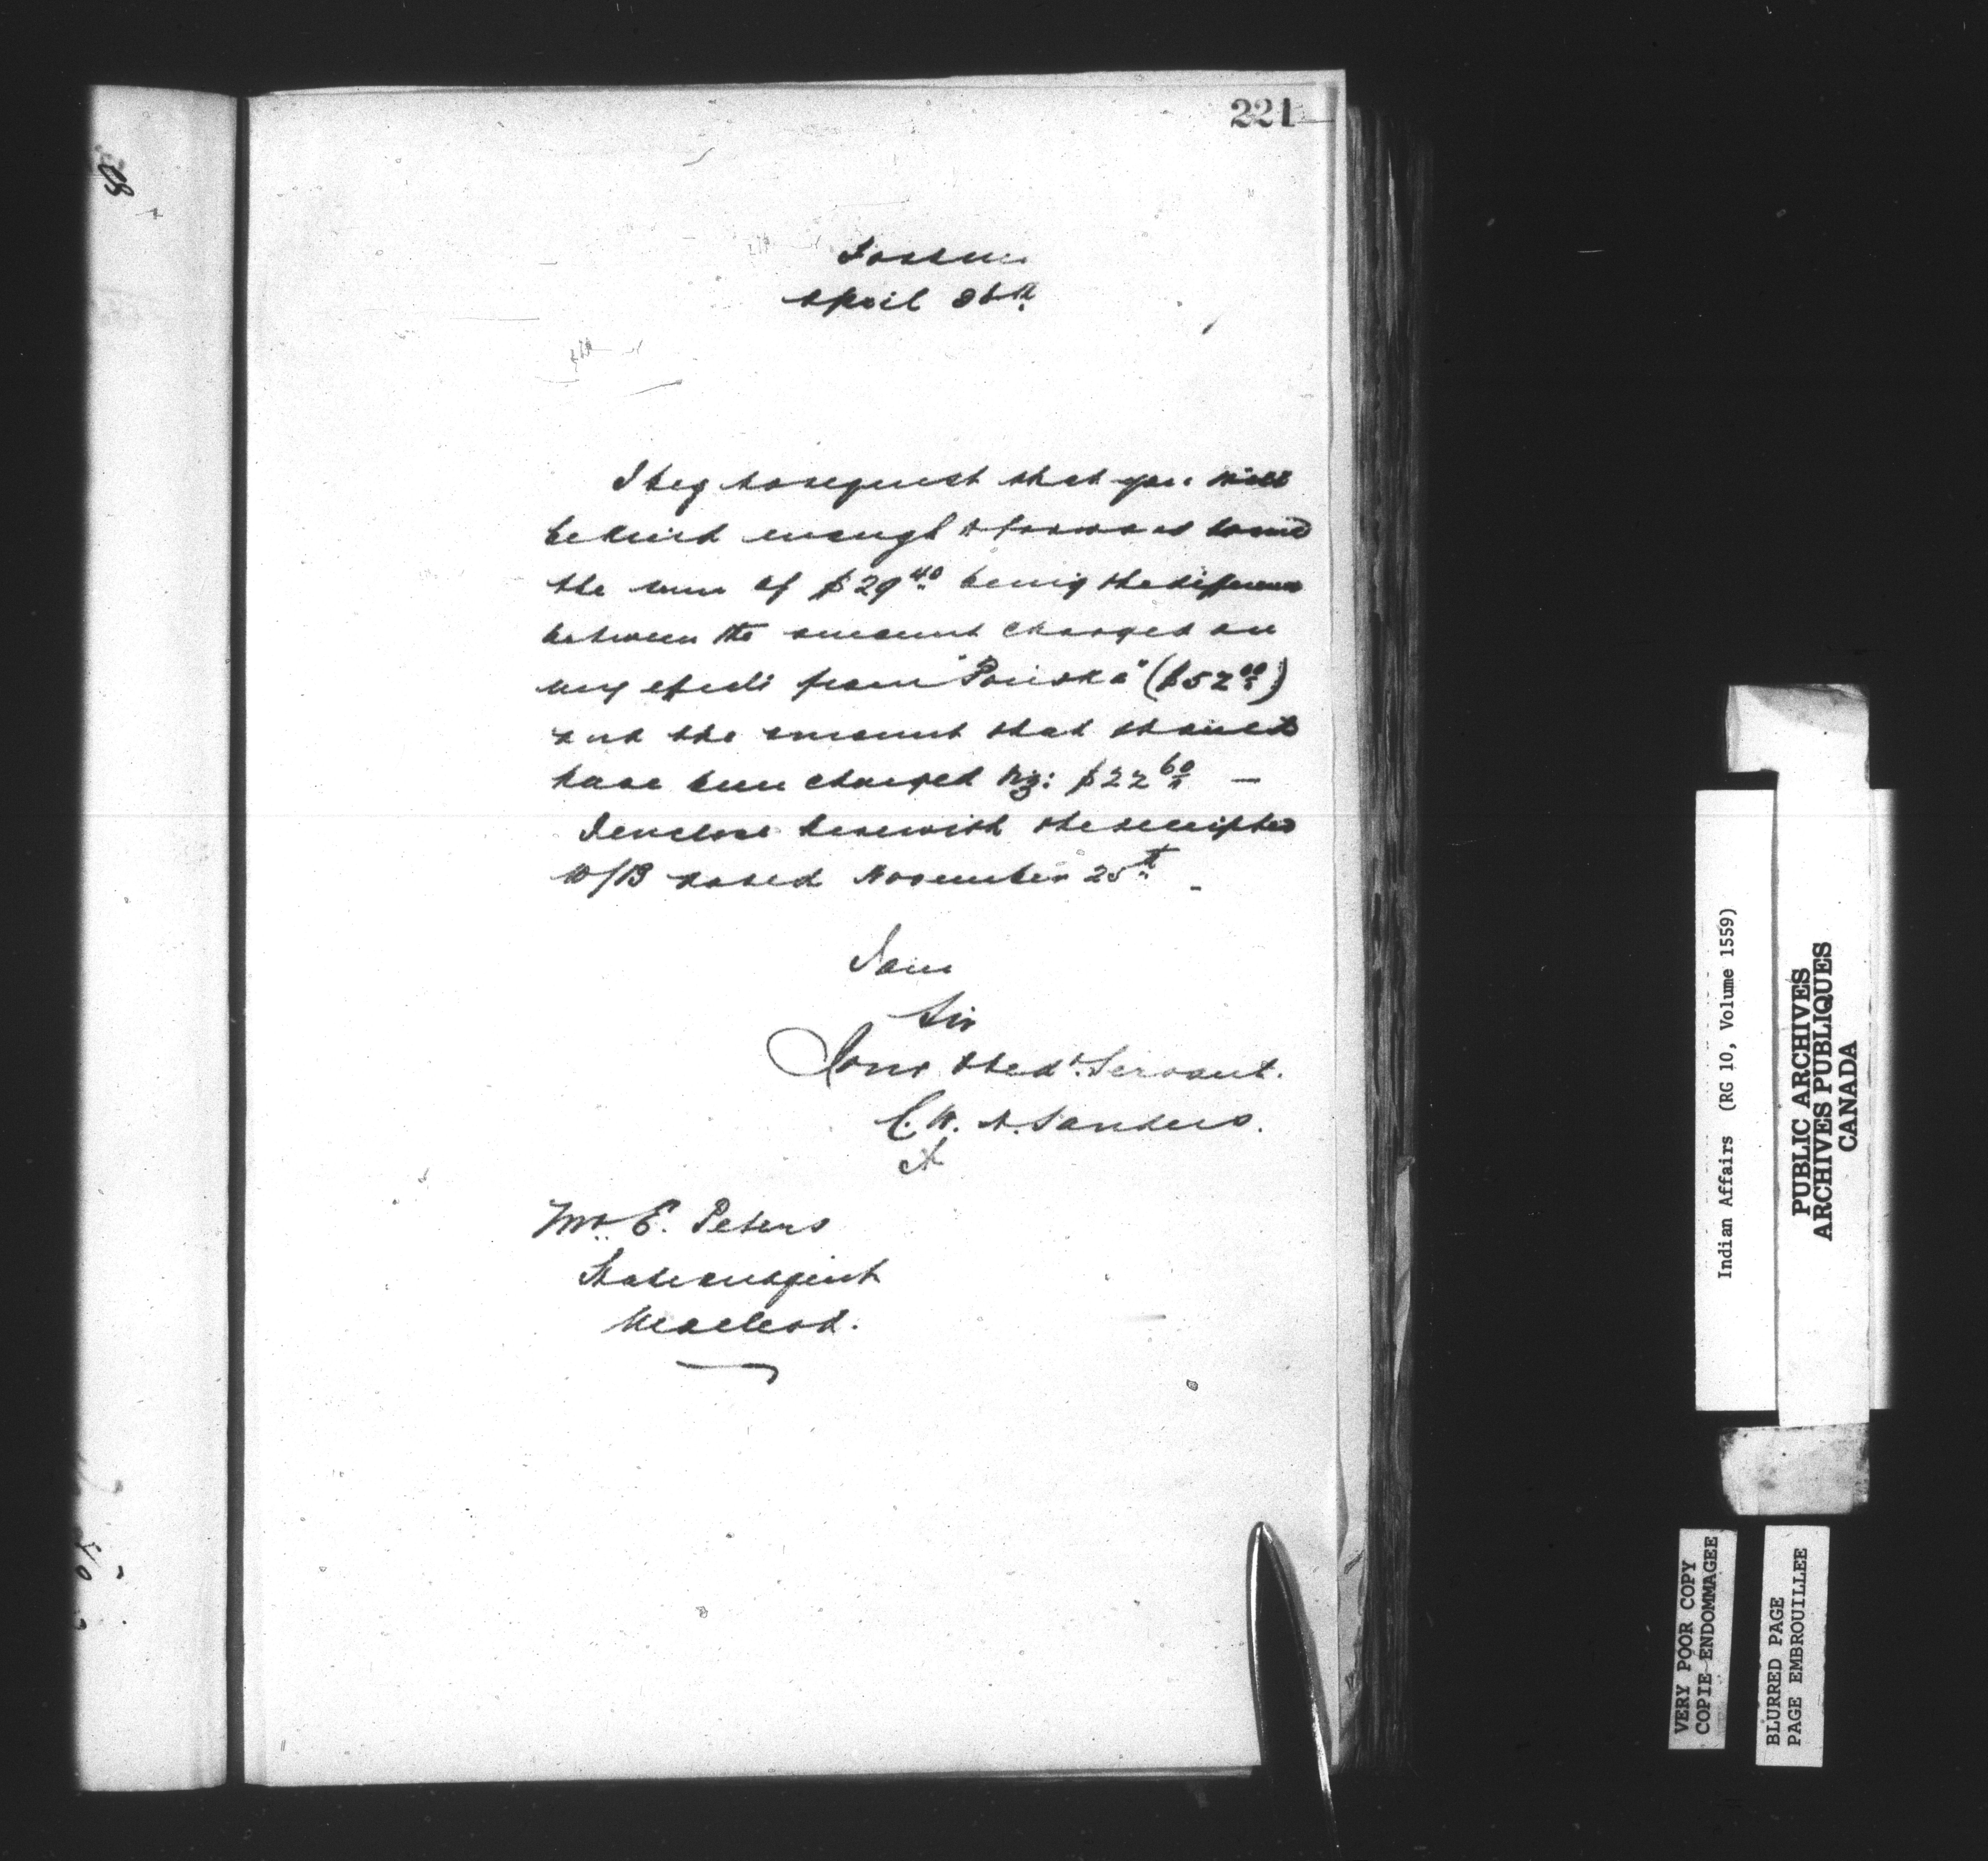 221
April 26th
I beg to request that you will
be kind enough to forward to me
the sum of $29.40 being the difference
between the amount charged on
my effects from "Ponoka" ($52.00)
and the amount that should
have been charged viz: $22.60 —
I enclose herewith the receipted
W/B dated November 25th -
I am
Sir
Your Obedt. Servant.
C. H. Sanders.
Mr. E. Peters
Station Agent
Macleod.
Indian Affairs (RG 10, Volume 1559)
PUBLIC ARCHIVES
ARCHIVES PUBLIQUES
CANADA
VERY POOR COPY
COPIE ENDOMMAGEE
BLURRED PAGE
PAGE EMBROUILLEE